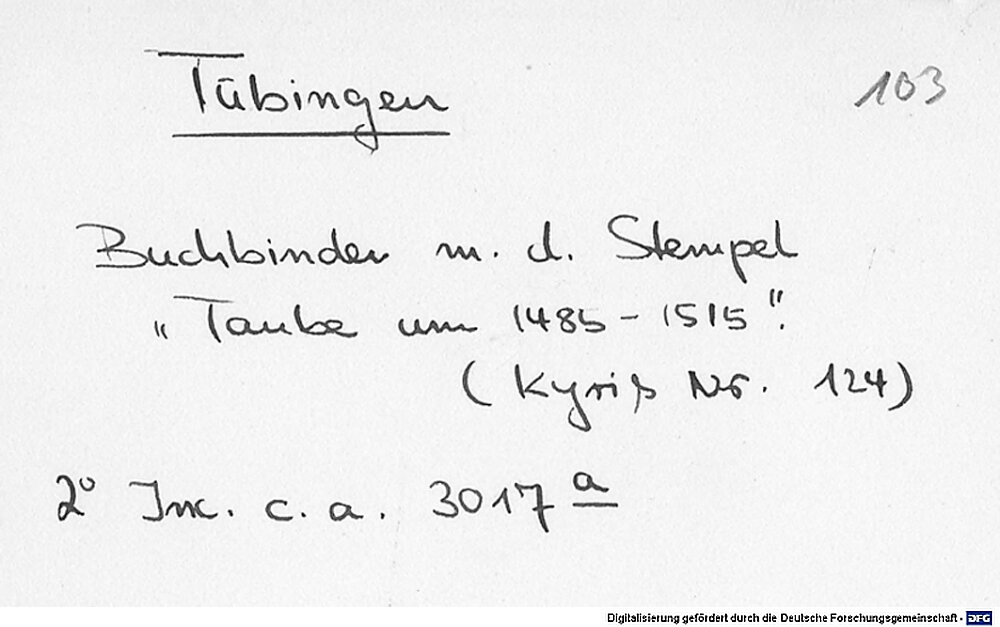 Tübingen
103
Buchbinder m. d. Stempel
"Taube um 1485 - 1515".
(Kyriß Nr. 124)
2° Inc. c. a. 3017 a
Digitalisierung gefördert durch die Deutsche Forschungsgemeinschaft - DFG